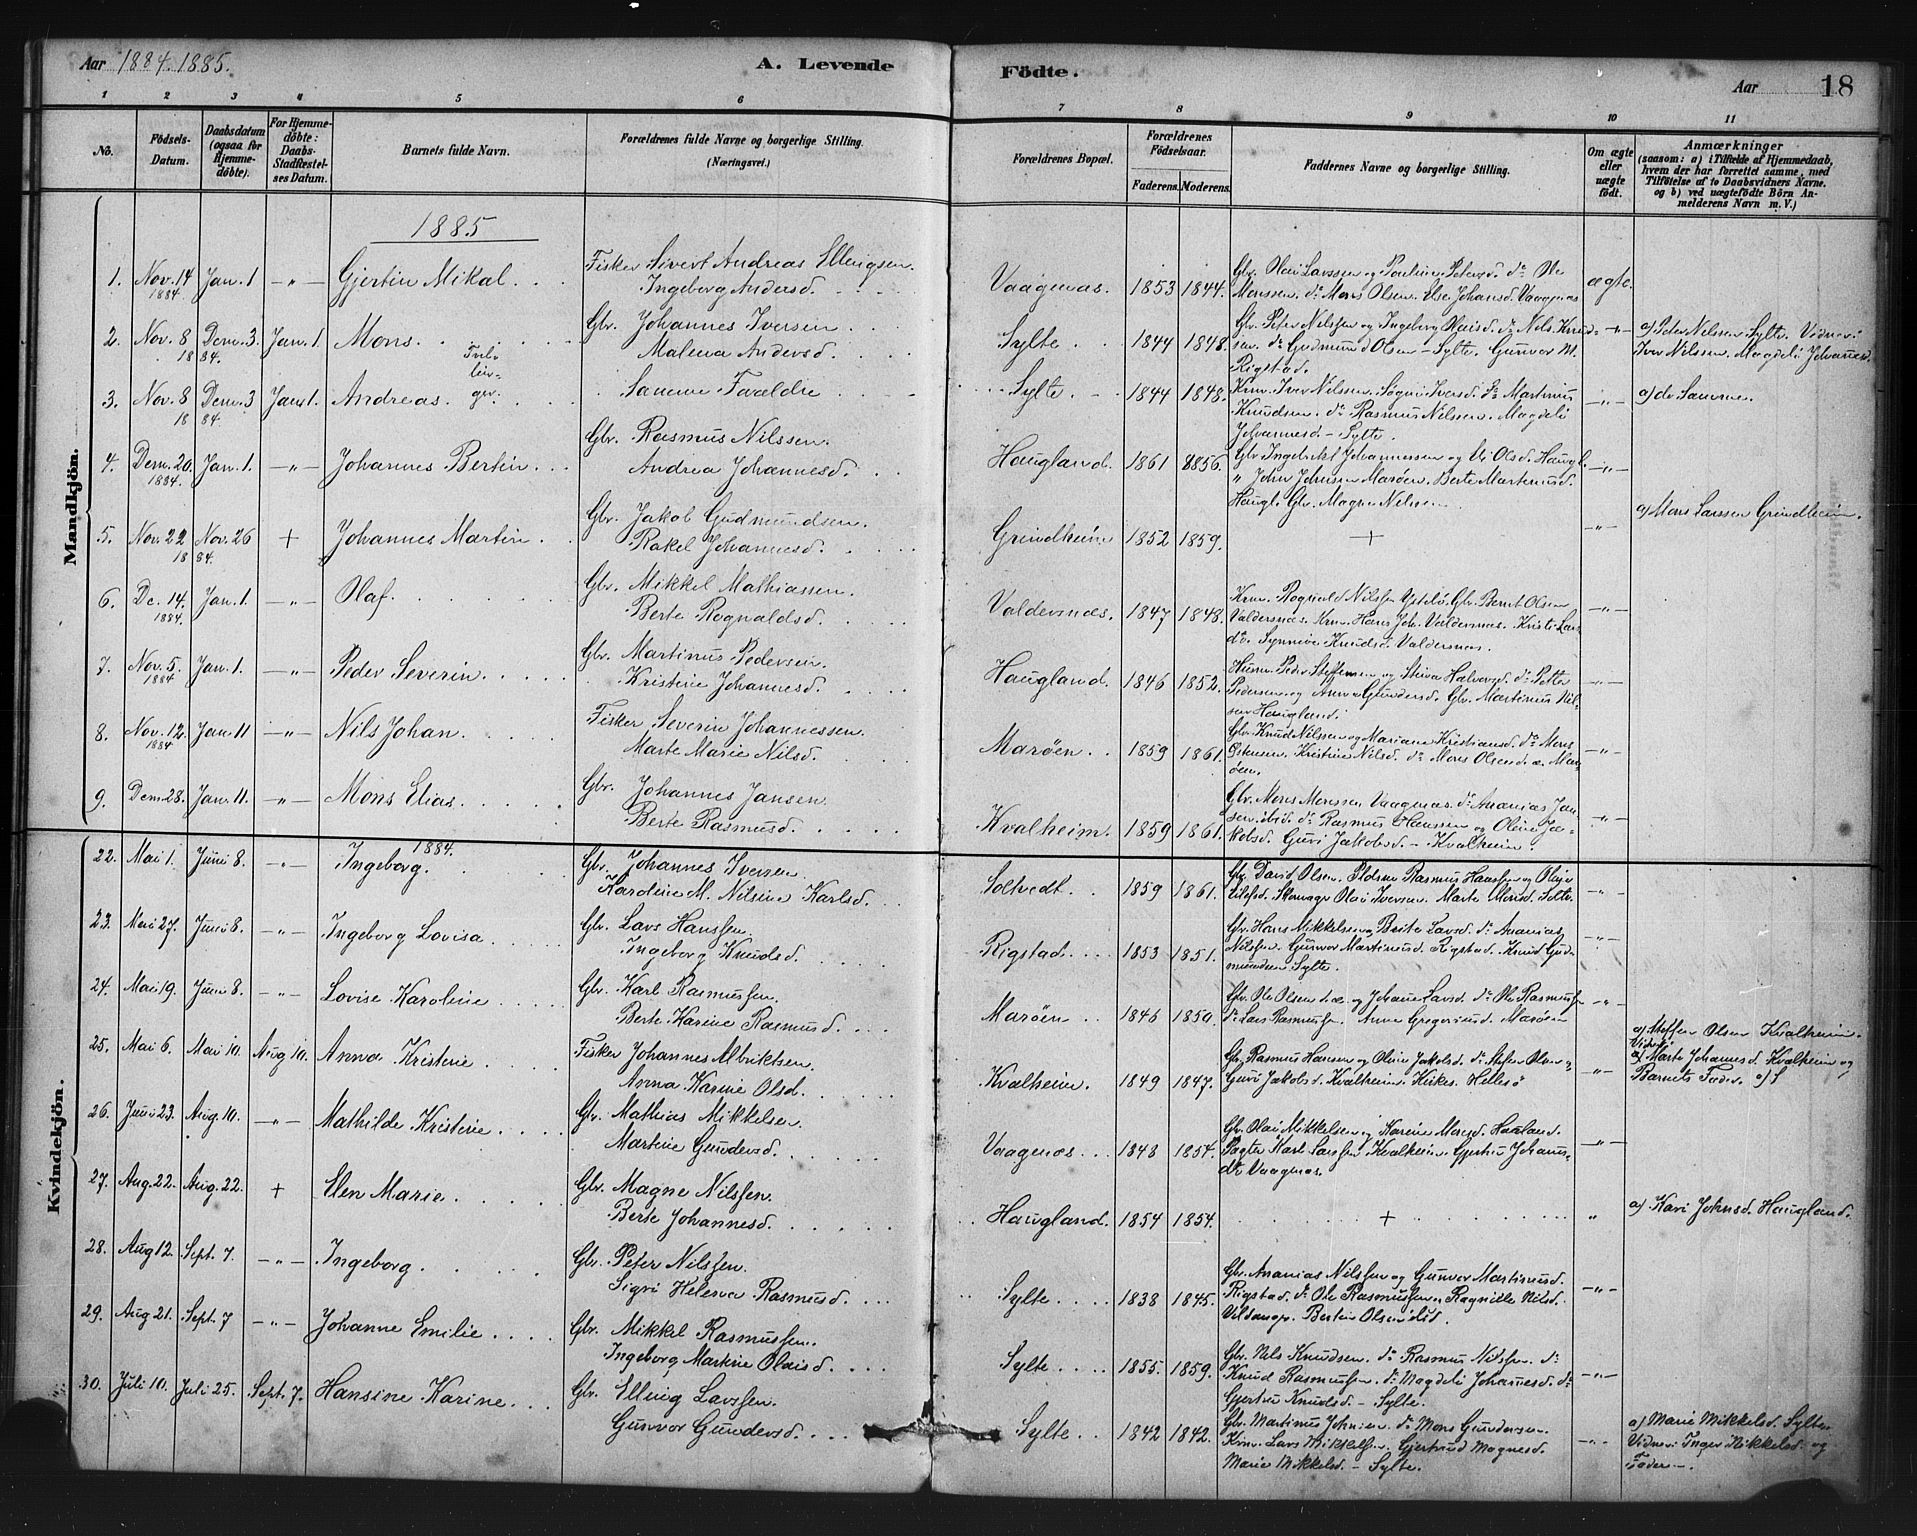 Aar 1884. 1885. A. Levende Födte. Aar 18
1 2 3 4 5 6 7 8 9 10 11
No. Födsels-Datum. Daabsdatum (ogsaa for Hjemmedöbte). For Hjemmedöbte: Daabs-Stadfæstelses Datum. Barnets fulde Navn. Forældrenes fulde Navne og borgerlige Stilling. (Næringsvei.) Forældrenes Bopæl. Forældrenes Födselsaar. Faderens. Moderens. Faddernes Navne og borgerlige Stilling. Om ægte eller uægte födt. Anmærkninger (saasom: a) i Tilfælde af Hjemmedaab, hvem der har forrettet samme, med Tilföielse af to Daabsvidners Navne. og b) ved uægtefödte Börn Anmelderens Navn m. V.)
Mandkjön.
1885
1. Nov. 14 1884 Jan. 1 -"- Gjertin Mikal Fisker Sivert Andreas Ellingsen. Vaagenæs. 1853 1844. Gbr. Olai Larssen og Pauline Petersd. do Ole ægte.
Ingeborg Andersd. Monssen. do Mons Olsen. Else Johansd. Vaagenæs
2. Nov. 8 1884. Dem. 3. Jan. 1. Mons. Tvillinger. Gbr. Johannes Iversen Sylte 1844 1848. Gbr. Peter Nilssen og Ingeborg Olaisd. do Nils Knud- -"- a) Peter Nilssen Sylte. Vidner:
Malena Andersd. sen. do Gudmund Olsen - Sylte. Gunvor M. Rigstad. Iver Nilssen. Magdeli Johannesd.
3. Nov. 8 1884. Dem. 3 Jan. 1. Andreas. Samme Forældre Sylte. 1844 1848. Iver Nilssen. Iversd. do Martinus -"- a) do Samme.
Knudsen. do Rasmus Nilssen. Magdeli
Johannesd. - Sylte.
4. Dem. 20. 1884. Jan. 1. -"- Johannes Bertin Gbr. Rasmus Nilssen. Haugland. 1861 1856. Gbr. Johannessen og Olsd. Haugl. -"-
Andrea Johannesd. " John Johnsen Marøen. Berte Martinusd.
Haugl. Gbr. Magne Nilssen
5. Nov. 22 1884. Nov. 26 + Johannes Martin Gbr. Jakob Gudmundsen. Grindheim 1852 1859. + -"- a) Mons Larssen Grindheim.
Rakel Johannesd.
6. Dc. 14. 1884. Jan. 1. -"- Olaf. Gbr. Mikkel Mathiassen. Valdersnæs. 1847 1848. Rognald Nilssen Gbr. Bernt Olsen -"-
Berte Rognaldsd. Valdersnæs. Hans Joh. Valdersnæs. Kristi Lars-
d. Synneve Knudsd. Valdersnæs.
7. Nov. 5. 1884 Jan. 1. -"- Peder Severin Gbr. Martinus Pedersen. Haugland. 1846 1852. Peder Steffensen og Stina Halvorsd. do Petter -"-
Kristine Johannesd. Pedersen og Anna Gundersd. Gbr. Martinus Nil-
sen Haugland.
8. Nov. 12. 1884 Jan. 11 -"- Nils Johan. Fisker Severin Johannessen. Marøen 1859 1861. Gbr. Knud Nilssen og Mariane Kristiansd. do Mons -"-
Marte Marie Nilsd. Kristine Nilsd. do Mons Olsen d. æ. Mar-
øen.
9. Dem. 28. Jan. 11. -"- Mons Elias. Gbr. Johannes Jansen. Kvalheim. 1859 1861. Gbr. Mons Monssen Vaagenæs. do Ananias Jan- -"-
Berte Rasmusd. sen ibid. do Rasmus Hanssen og Oline Ja-
kobsd. Guri Jakobsd. - Kvalheim.
Kvindekjön.
22. Mai 1. Juni 8. -"- 1884. Ingeborg. Gbr. Johannes Iversen. Soltvedt. 1859 1861. Gbr. David Olsen. Rasmus Hanssen og Oline -"-
Karoline M. Nilsine Karlsd. Olai Iversen. Marte Monsd. Sylte.
23. Mai 27. Juni 8. -"- Ingeborg Lovisa Gbr. Lars Hanssen. Rigstad 1853 1851. Gbr. Hans Mikkelsen og Brite Larsd. do Ananias -"-
Ingeborg Knudsd. Nilssen. Gunvor Martinusd. Rigstad. Knud Gud-
mundsen Sylte.
24. Mai 19. Juni 8. -"- Lovise Karoline Gbr. Karl Rasmussen. Marøen 1846 1850. Gbr. Ole Olsen d. æ. og Johane Larsd. do Ole Rasmussen -"-
Berte Karine Rasmusd. do Lars Rasmussen. Anne Gregoriusd. Marøen
25. Mai 6. Mai 10. Aug. 10. Anna Kristine Fisker Johannes Albriktsen. Kvalheim. 1849 1847. Gbr. Rasmus Hansen og Oline Jakobsd. do Stefen Olsen -"- a) Steffen Olsen Kvalheim.
Anna Karine Olsd. Guri Jakobsd. Kvalheim. Kirkes. Hellesø Vidner: Marte Johannesd. Kvalheim og
Barnets Fader.
26. Juni 23. Aug. 10. -"- Mathilde Kristine Gbr. Mathias Mikkelsen Vaagenæs 1848 1854. Gbr. Olai Mikkelsen og Karine Monsd. Haugland. -"-
Martine Gundersd. Karl Larssen Kvalheim. Gjertru Johannes-
d. Vaagenæs.
27. Aug. 22. Aug. 22. + Elen Marie Gbr. Magne Nilssen. Haugland. 1854 1854. + " a) Kari Johnsd. Haugland.
Berte Johannesd.
28. Aug 12. Sept. 7. -"- Ingeborg. Gbr. Peter Nilssen. Sylte 1838 1845. Gbr. Ananias Nilssen og Gunvor Martinusd. -"-
Sigri Helena Rasmusd. Rigstad. do Ole Rasmussen. Ragnille Nilsd.
Bertin Olsen ibid.
29. Aug. 21. Sept. 7 -"- Johanne Emilie Gbr. Mikkel Rasmussen. Sylte 1855. 1859. Gbr. Nils Knudsen. do Rasmus Nilssen. do -"-
Ingeborg Martine Olaisd. Knud Rasmussen. do Magdeli Johannesd. do
Gjertru Knudsd. - Sylte.
30. Juli 10. Juli 25. Sept. 7. Hansine Karine Gbr. Elling Larssen. Sylte 1842 1842. Gbr. Martinus Johnsen. do Mons Gundersen. -"- a) Marie Mikkelsd. Sylte.
Gunvor Gundersd. Lars Mikkelsen. Gjertrud Magnesd. Vidner: Inger Mikkelsd. og
Marie Mikkelsd. - Sylte. Fader -.